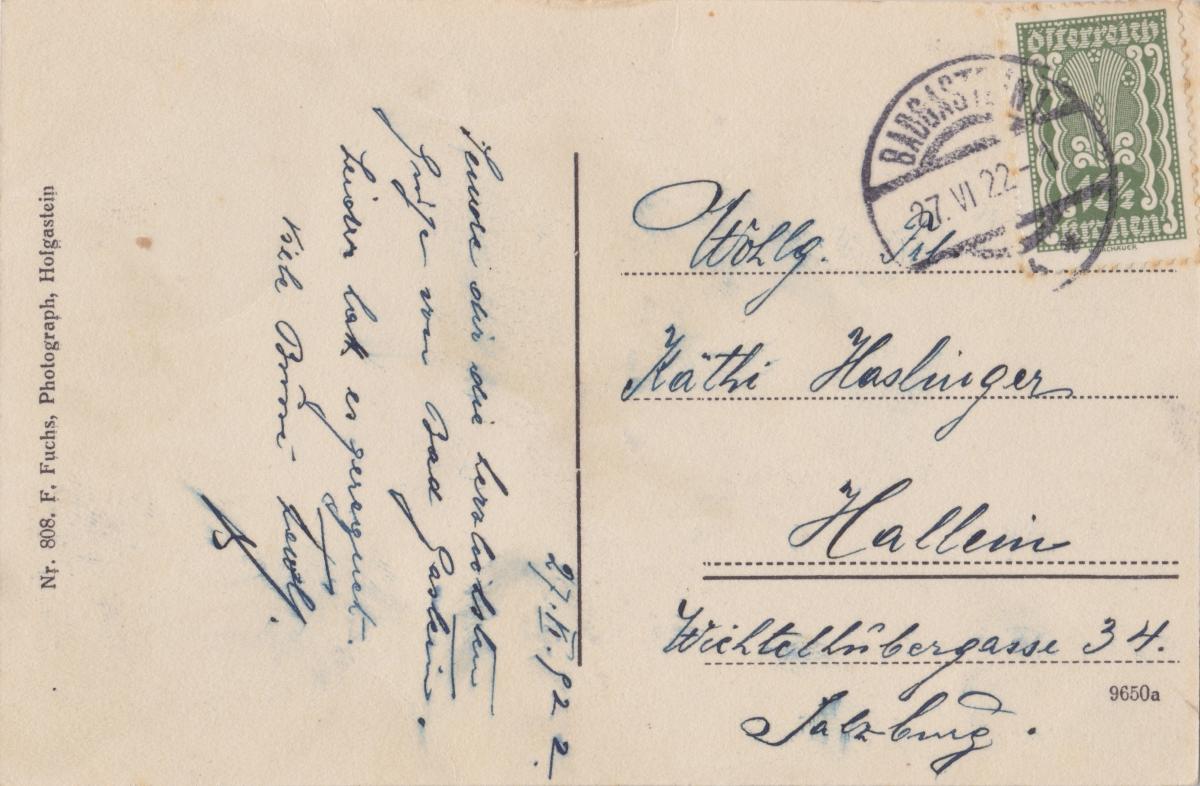 Nr. 808. F. Fuchs, Photograph, Hofgastein
27.VI.922.
Sende dir die herzlichsten
Grüße von Bad Gastein.
Leider hat es geregnet.
Viele
BADGASTEIN
27.VI.22
1
Österreich
12½
Kronen
Wohlg. Frl
Käthi Haslinger
Hallein
Wichtelhübergasse 34.
Salzburg.
9650a